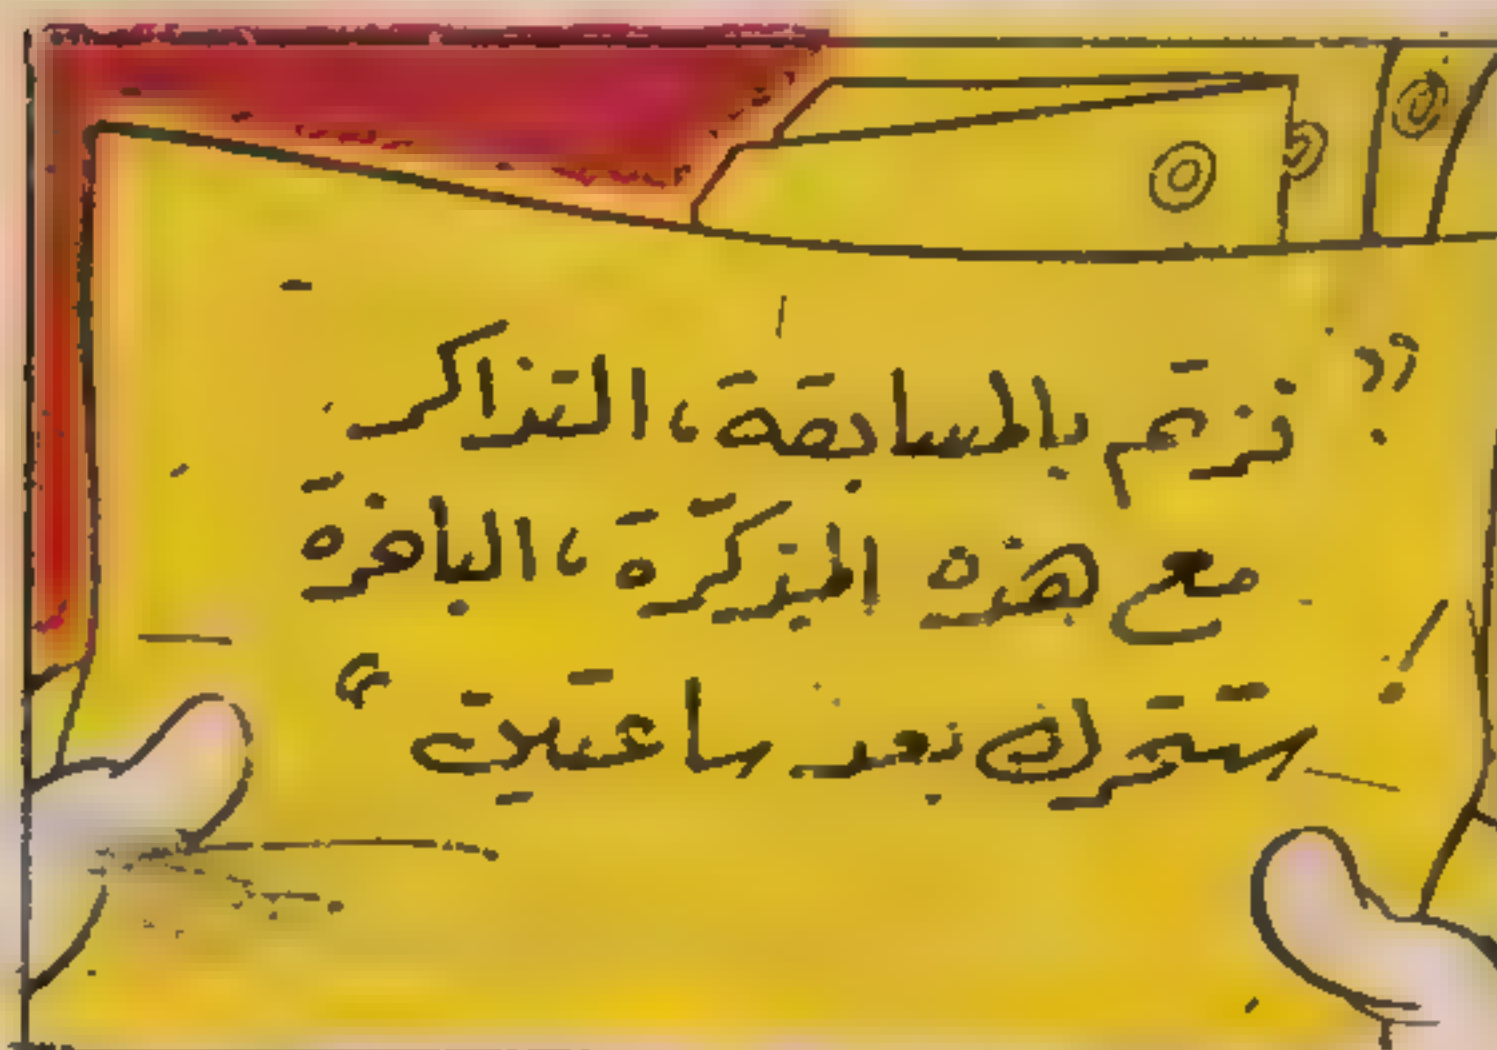 ” فزتم بالمسابقة ، التذاكر
مع هذه المذكرة ، الباخرة
ستتحرك بعد ساعتين “